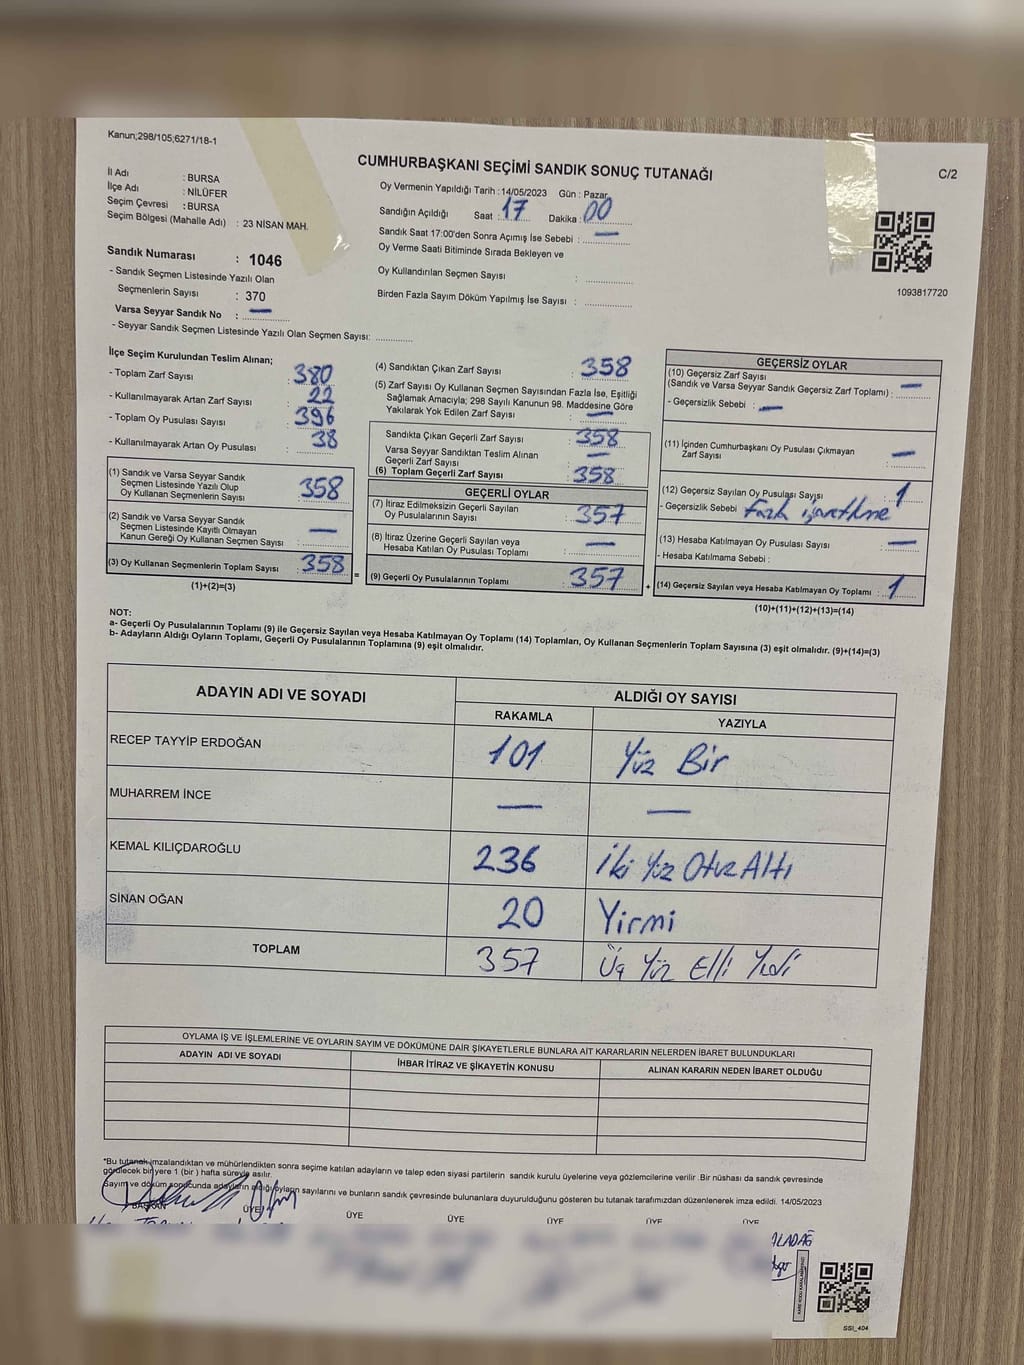 Kanun;298/105;6271/18-1
CUMHURBAŞKANI SEÇİMİ SANDIK SONUÇ TUTANAĞI
C/2
İl Adı : BURSA
İlçe Adı : NİLÜFER
Seçim Çevresi : BURSA
Seçim Bölgesi (Mahalle Adı) : 23 NİSAN MAH.
Sandık Numarası : 1046
- Sandık Seçmen Listesinde Yazılı Olan
Seçmenlerin Sayısı : 370
Varsa Seyyar Sandık No : —
- Seyyar Sandık Seçmen Listesinde Yazılı Olan Seçmen Sayısı:
Oy Vermenin Yapıldığı Tarih : 14/05/2023 Gün : Pazar
Sandığın Açıldığı Saat : 17 Dakika : 00
Sandık Saat 17:00'den Sonra Açımış İse Sebebi : —
Oy Verme Saati Bitiminde Sırada Bekleyen ve
Oy Kullandırılan Seçmen Sayısı :
Birden Fazla Sayım Döküm Yapılmış İse Sayısı :
1093817720
İlçe Seçim Kurulundan Teslim Alınan;
- Toplam Zarf Sayısı : 380
- Kullanılmayarak Artan Zarf Sayısı : 22
- Toplam Oy Pusulası Sayısı : 396
- Kullanılmayarak Artan Oy Pusulası : 38
(1) Sandık ve Varsa Seyyar Sandık
Seçmen Listesinde Yazılı Olup
Oy Kullanan Seçmenlerin Sayısı : 358
(2) Sandık ve Varsa Seyyar Sandık
Seçmen Listesinde Kayıtlı Olmayan
Kanun Gereği Oy Kullanan Seçmen Sayısı : —
(3) Oy Kullanan Seçmenlerin Toplam Sayısı : 358
(1)+(2)=(3)
=
(4) Sandıktan Çıkan Zarf Sayısı : 358
(5) Zarf Sayısı Oy Kullanan Seçmen Sayısından Fazla İse, Eşitliği
Sağlamak Amacıyla; 298 Sayılı Kanunun 98. Maddesine Göre
Yakılarak Yok Edilen Zarf Sayısı : —
Sandıkta Çıkan Geçerli Zarf Sayısı : 358
Varsa Seyyar Sandıktan Teslim Alınan
Geçerli Zarf Sayısı : —
(6) Toplam Geçerli Zarf Sayısı : 358
GEÇERLİ OYLAR
(7) İtiraz Edilmeksizin Geçerli Sayılan
Oy Pusulalarının Sayısı : 357
(8) İtiraz Üzerine Geçerli Sayılan veya
Hesaba Katılan Oy Pusulası Toplamı : —
(9) Geçerli Oy Pusulalarının Toplamı : 357
+
GEÇERSİZ OYLAR
(10) Geçersiz Zarf Sayısı
(Sandık ve Varsa Seyyar Sandık Geçersiz Zarf Toplamı) : —
- Geçersizlik Sebebi : —
(11) İçinden Cumhurbaşkanı Oy Pusulası Çıkmayan
Zarf Sayısı : —
(12) Geçersiz Sayılan Oy Pusulası Sayısı : 1
- Geçersizlik Sebebi : Fazla işaretleme
(13) Hesaba Katılmayan Oy Pusulası Sayısı : —
- Hesaba Katılmama Sebebi :
(14) Geçersiz Sayılan veya Hesaba Katılmayan Oy Toplamı : 1
(10)+(11)+(12)+(13)=(14)
NOT:
a- Geçerli Oy Pusulalarının Toplamı (9) ile Geçersiz Sayılan veya Hesaba Katılmayan Oy Toplamı (14) Toplamları, Oy Kullanan Seçmenlerin Toplam Sayısına (3) eşit olmalıdır. (9)+(14)=(3)
b- Adayların Aldığı Oyların Toplamı, Geçerli Oy Pusulalarının Toplamına (9) eşit olmalıdır.
ADAYIN ADI VE SOYADI ALDIĞI OY SAYISI
RAKAMLA YAZIYLA
RECEP TAYYİP ERDOĞAN 101 Yüz Bir
MUHARREM İNCE — —
KEMAL KILIÇDAROĞLU 236 İki Yüz Otuz Altı
SİNAN OĞAN 20 Yirmi
TOPLAM 357 Üç Yüz Elli Yedi
OYLAMA İŞ VE İŞLEMLERİNE VE OYLARIN SAYIM VE DÖKÜMÜNE DAİR ŞİKAYETLERLE BUNLARA AİT KARARLARIN NELERDEN İBARET BULUNDUKLARI
ADAYIN ADI VE SOYADI İHBAR İTİRAZ VE ŞİKAYETİN KONUSU ALINAN KARARIN NEDEN İBARET OLDUĞU
*Bu tutanak imzalandıktan ve mühürlendikten sonra seçime katılan adayların ve talep eden siyasi partilerin sandık kurulu üyelerine veya gözlemcilerine verilir. Bir nüshası da sandık çevresinde
görülecek bir yere 1 (bir ) hafta süreyle asılır.
Sayım ve döküm sonucunda adayların aldığı oyların sayılarını ve bunların sandık çevresinde bulunanlara duyurulduğunu gösteren bu tutanak tarafımızdan düzenlenerek imza edildi. 14/05/2023
BAŞKAN ÜYE ÜYE ÜYE ÜYE ÜYE ÜYE
ALADAĞ
SSI_404